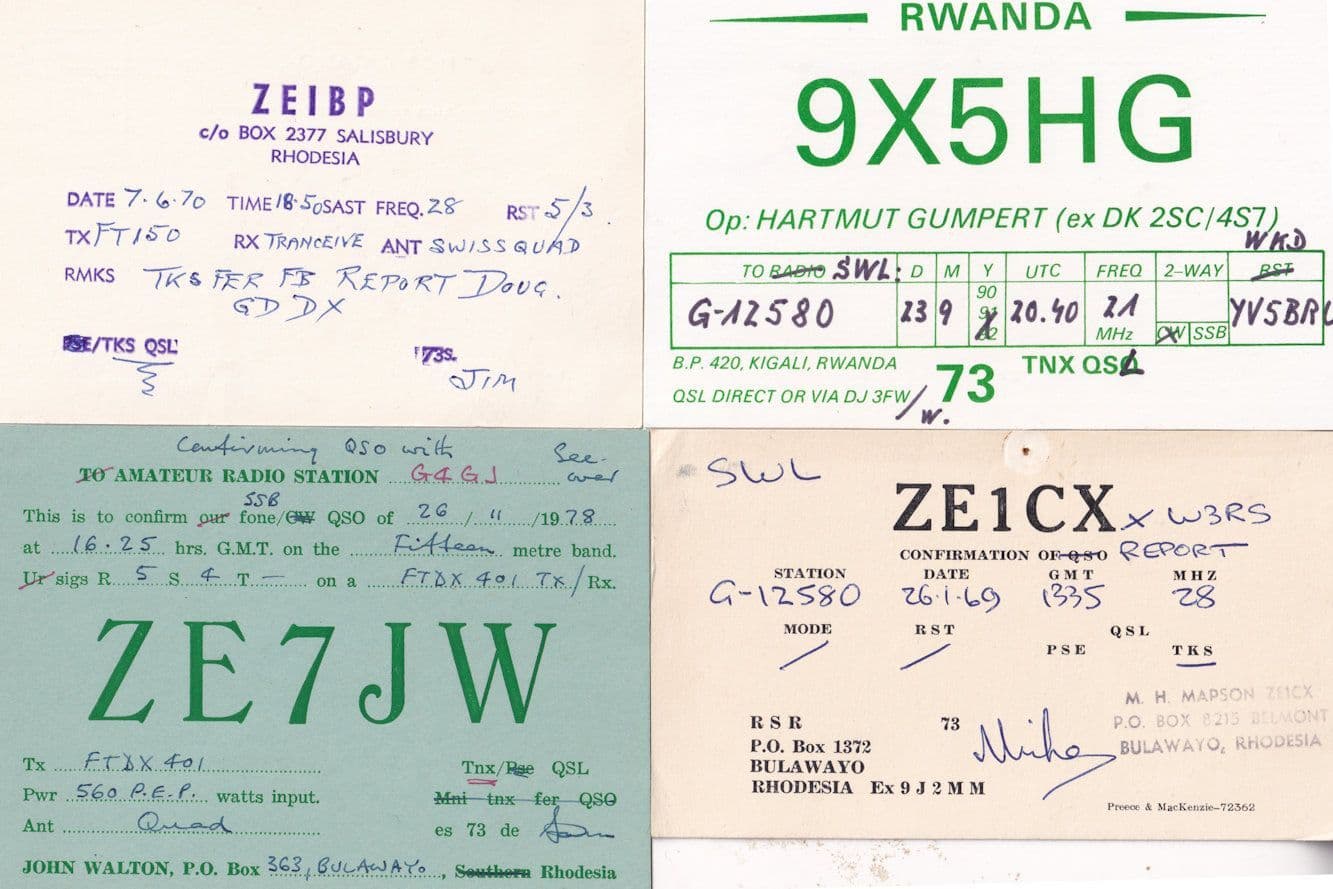 ZEIBP
c/o BOX 2377 SALISBURY
RHODESIA
DATE 7.6.70 TIME 18.50 SAST FREQ. 28 RST 5/3.
TX FT150 RX TRANCEIVE ANT SWISS QUAD
RMKS TKS FER FB REPORT DOUG.
GD DX
PSE/TKS QSL 73S.
JIM
RWANDA
9X5HG
Op: HARTMUT GUMPERT (ex DK 2SC/4S7)
WKD
TO RADIO SWL: D M Y UTC FREQ 2-WAY RST
G-12580 23 9 90 91 92 20.40 21 MHz CW SSB YV5BRU
B.P. 420, KIGALI, RWANDA 73 TNX QSL
QSL DIRECT OR VIA DJ 3FW/W.
Confirming QSO with See-over
TO AMATEUR RADIO STATION G4GJ
SSB
This is to confirm our fone/CW QSO of 26/11/1978
at 16.25 hrs. G.M.T. on the Fifteen metre band.
Ur sigs R 5 S 4 T — on a FTDX 401 Tx/Rx.
ZE7JW
Tx FTDX 401 Tnx/Pse QSL
Pwr 560 P.E.P. watts input. Mni tnx fer QSO
Ant Quad es 73 de
JOHN WALTON, P.O. Box 363, BULAWAYO, Southern Rhodesia
SWL
ZE1CX x W3RS
CONFIRMATION OF QSO REPORT
STATION DATE GMT MHZ
G-12580 26.1.69 1335 28
MODE RST QSL
/ / PSE TKS
M. H. MAPSON ZE1CX
P.O. BOX 8213 BELMONT
BULAWAYO, RHODESIA
RSR 73 Mike
P.O. Box 1372
BULAWAYO
RHODESIA Ex 9J2MM
Preece & MacKenzie-72362